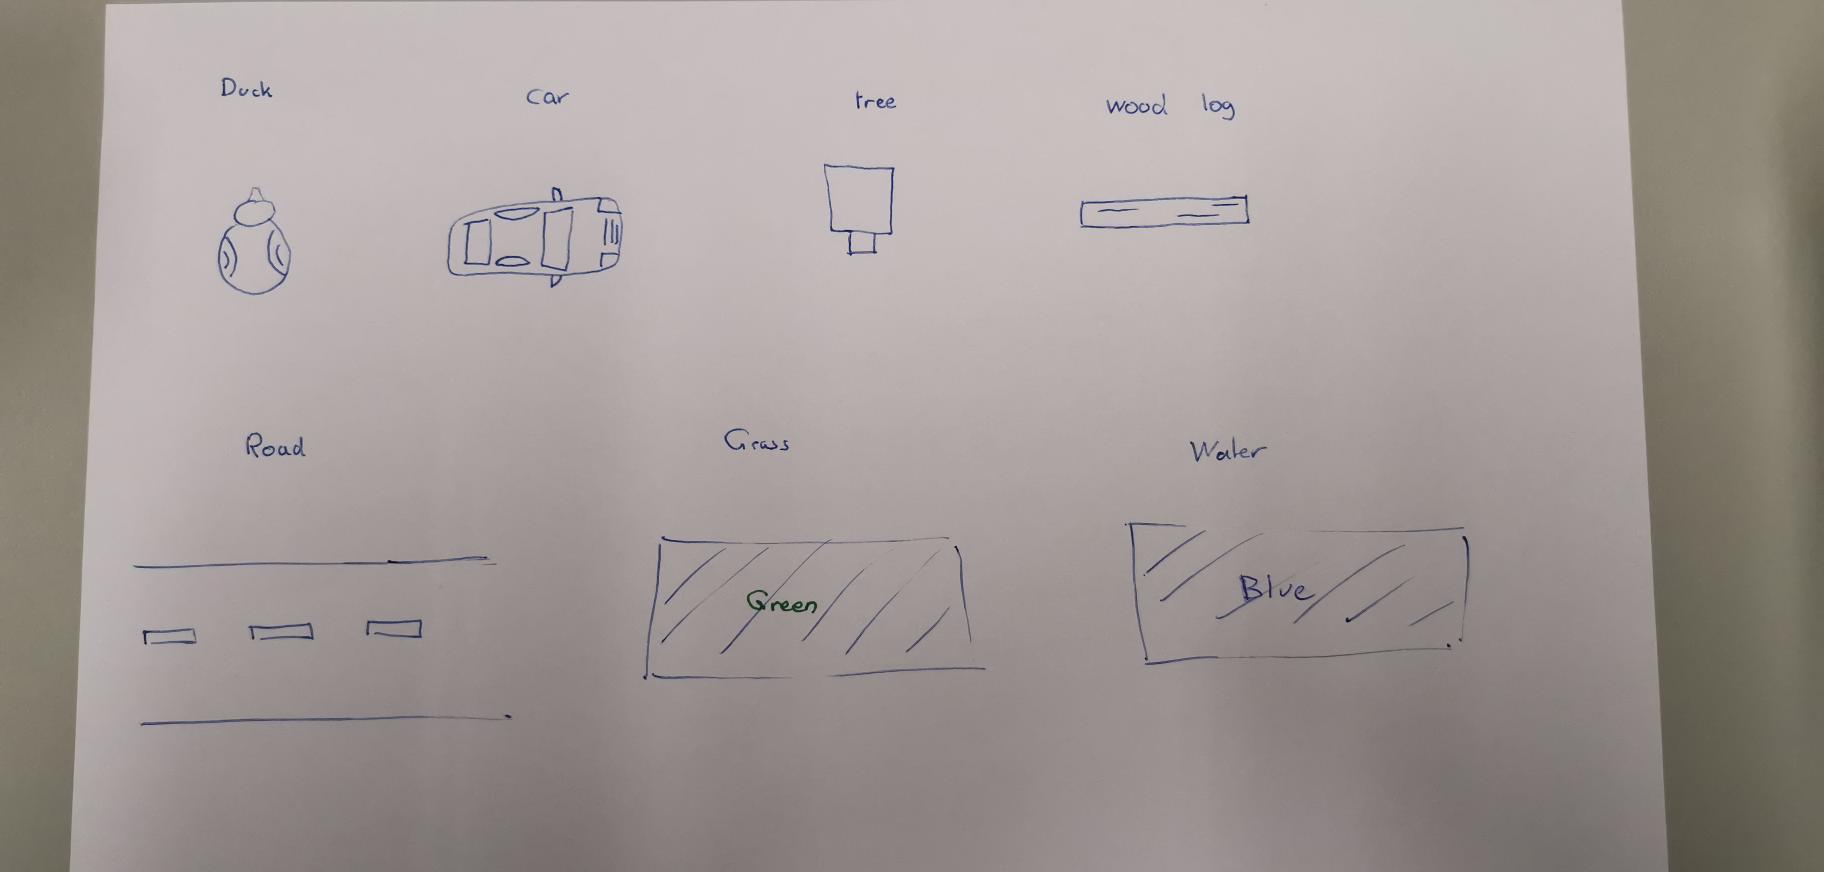 Duck
Car
tree
wood log
Road
Grass
Water
Green
Blue